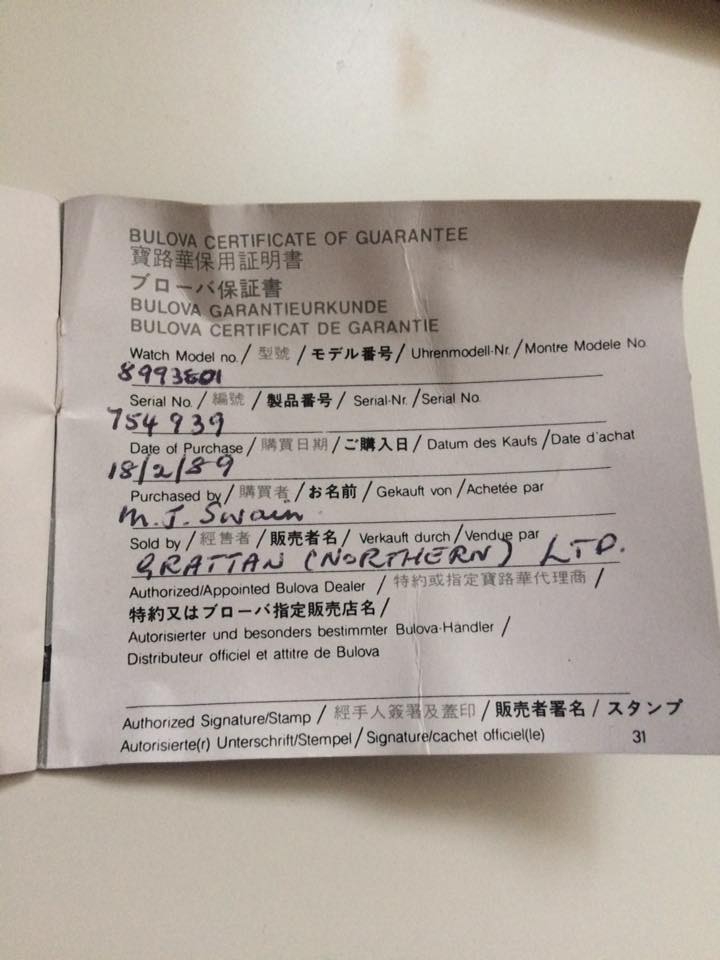 BULOVA CERTIFICATE OF GUARANTEE
寶路華保用証明書
ブローバ保証書
BULOVA GARANTIEURKUNDE
BULOVA CERTIFICAT DE GARANTIE
Watch Model no. / 型號 / モデル番号 / Uhrenmodell-Nr. / Montre Modele No.
8993E01
Serial No. / 編號 / 製品番号 / Serial-Nr. / Serial No.
754939
Date of Purchase / 購買日期 / ご購入日 / Datum des Kaufs / Date d'achat
18/2/89
Purchased by / 購買者 / お名前 / Gekauft von / Achetée par
M. J. Swain
Sold by / 經售者 / 販売者名 / Verkauft durch / Vendue par
GRATTAN (NORTHERN) LTD.
Authorized/Appointed Bulova Dealer / 特約或指定寶路華代理商 /
特約又はブローバ指定販売店名 /
Autorisierter und besonders bestimmter Bulova-Händler /
Distributeur officiel et attitre de Bulova
Authorized Signature/Stamp / 經手人簽署及蓋印 / 販売者署名 / スタンプ
Autorisierte(r) Unterschrift/Stempel / Signature/cachet officiel(le)
31